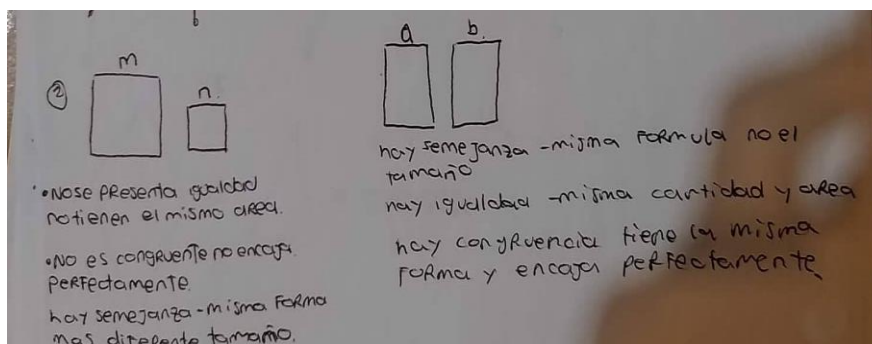 b
②
m
n
•NO SE PRESENTA igualdad
no tienen el mismo area.
•NO es congruente no encaja
PERFectamente.
hay semejanza - misma FoRma
mas diferente tamaño.
a
b
hay semejanza - misma FoRmula no el
tamaño
hay igualdad - misma cantidad y area
hay congRuencia tiene la misma
FORma y encaja PeRFectamente.